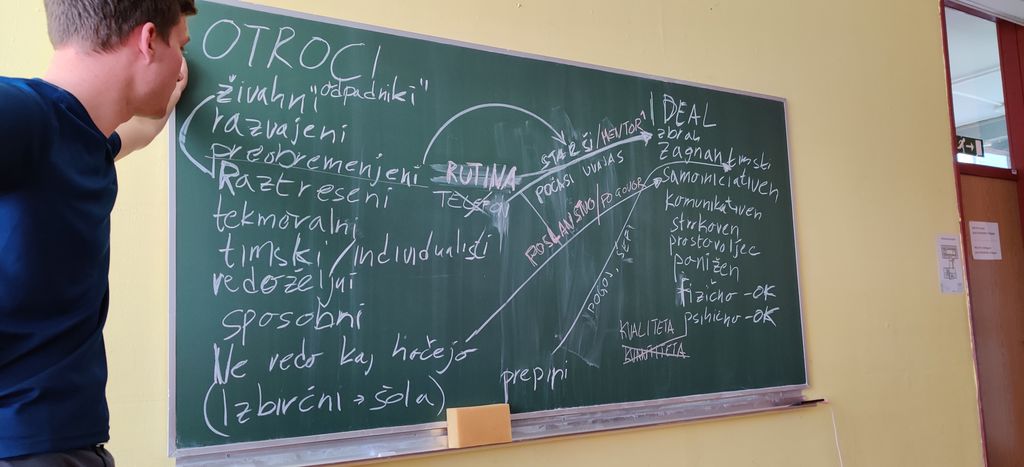 OTROCI
živahni "odpadniki"
razvajeni
preobremenjeni
Raztreseni
tekmovalni
timski / individualisti
vedoželjni
sposobni
Ne vedo kaj hočejo
(Izbirčni → šola)
RUTINA
STARŠI/MENTOR
POČASI UVAJAŠ
POSLANSTVO/POGOVOR
prepiri
IDEAL
zbran
zagnan timski
samoiniciativen
komunikativen
strokoven
prostovoljec
ponižen
fizično - OK
psihično - OK
KVALITETA
KVANTITETA